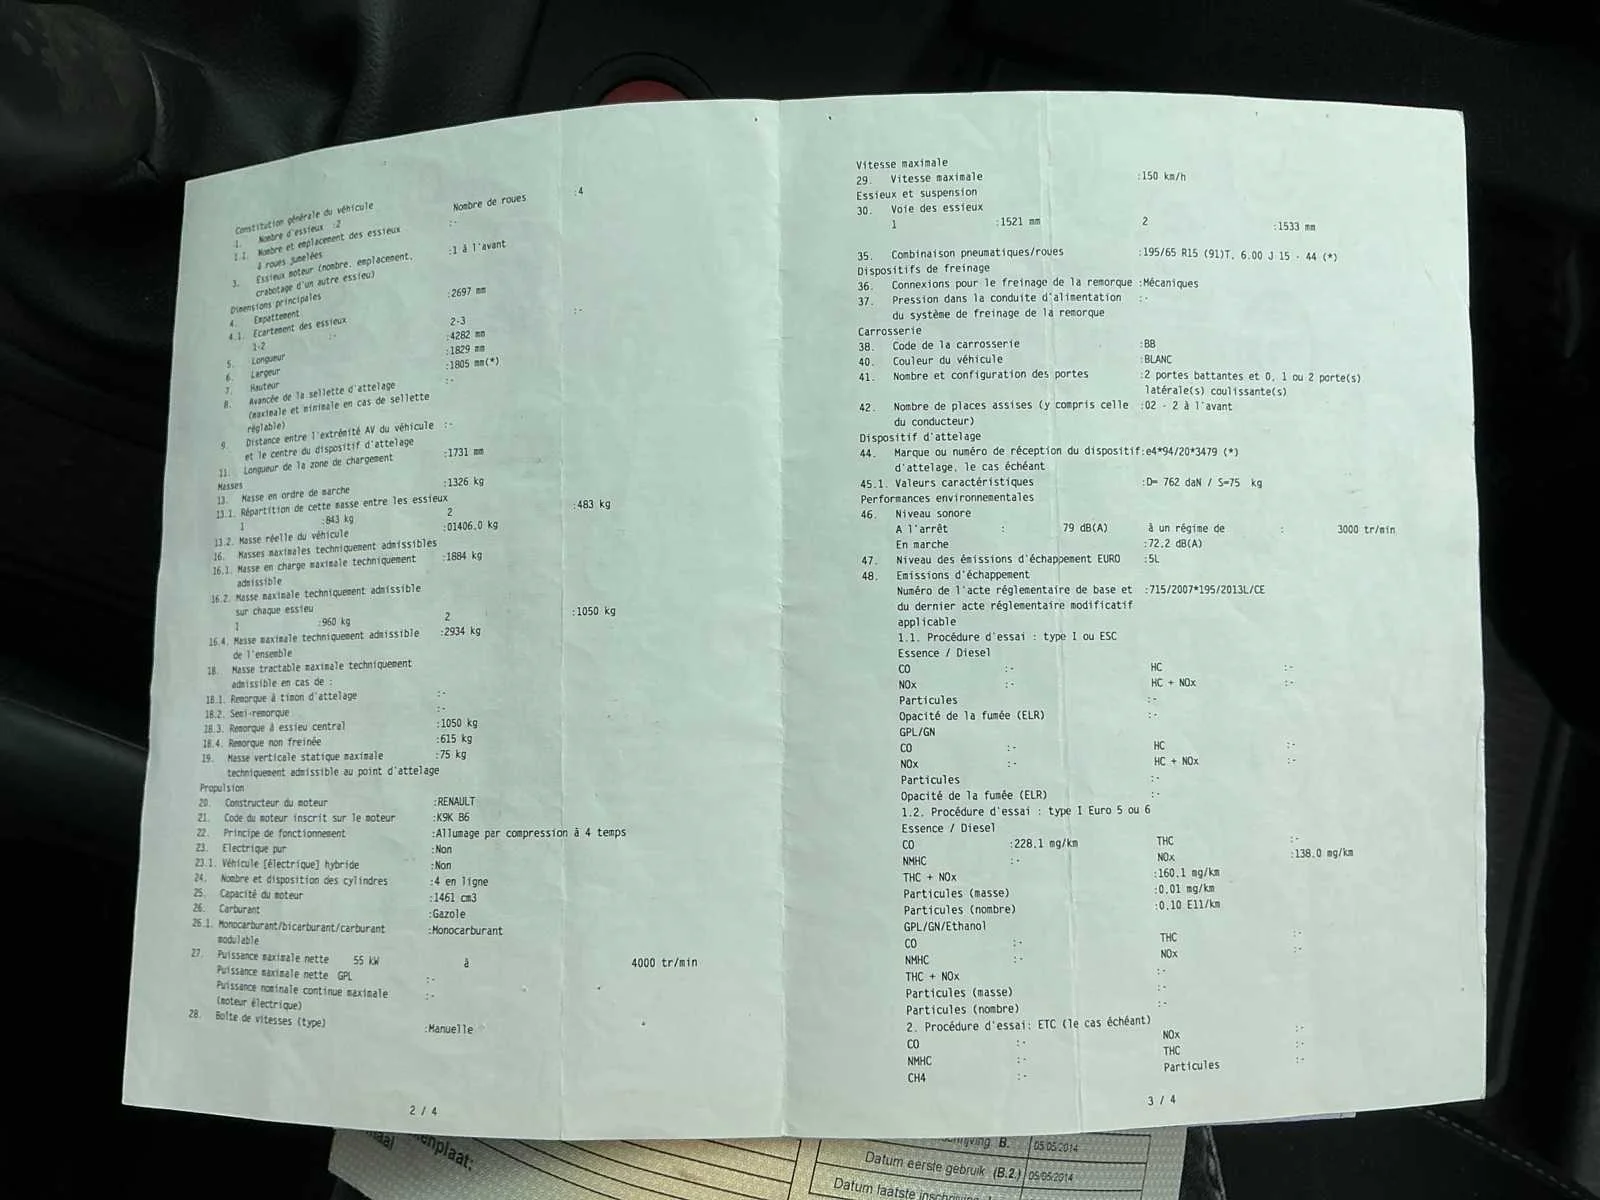 Constitution générale du véhicule
1. Nombre d'essieux :2 Nombre de roues :4
1.1. Nombre et emplacement des essieux :-
à roues jumelées
3. Essieux moteur (nombre, emplacement, :1 à l'avant
crabotage d'un autre essieu)
Dimensions principales
4. Empattement :2697 mm
4.1. Ecartement des essieux
1-2 :- 2-3 :-
5. Longueur :4282 mm
6. Largeur :1829 mm
7. Hauteur :1805 mm(*)
8. Avancée de la sellette d'attelage :-
(maximale et minimale en cas de sellette
réglable)
9. Distance entre l'extrémité AV du véhicule :-
et le centre du dispositif d'attelage
11. Longueur de la zone de chargement :1731 mm
Masses
13. Masse en ordre de marche :1326 kg
13.1. Répartition de cette masse entre les essieux
1 :843 kg 2 :483 kg
13.2. Masse réelle du véhicule :01406.0 kg
16. Masses maximales techniquement admissibles
16.1. Masse en charge maximale techniquement :1884 kg
admissible
16.2. Masse maximale techniquement admissible
sur chaque essieu
1 :960 kg 2 :1050 kg
16.4. Masse maximale techniquement admissible :2934 kg
de l'ensemble
18. Masse tractable maximale techniquement
admissible en cas de :
18.1. Remorque à timon d'attelage :-
18.2. Semi-remorque :-
18.3. Remorque à essieu central :1050 kg
18.4. Remorque non freinée :615 kg
19. Masse verticale statique maximale :75 kg
techniquement admissible au point d'attelage
Propulsion
20. Constructeur du moteur :RENAULT
21. Code du moteur inscrit sur le moteur :K9K B6
22. Principe de fonctionnement :Allumage par compression à 4 temps
23. Electrique pur :Non
23.1. Véhicule [électrique] hybride :Non
24. Nombre et disposition des cylindres :4 en ligne
25. Capacité du moteur :1461 cm3
26. Carburant :Gazole
26.1. Monocarburant/bicarburant/carburant :Monocarburant
modulable
27. Puissance maximale nette 55 kW à 4000 tr/min
Puissance maximale nette GPL :-
Puissance nominale continue maximale :-
(moteur électrique)
28. Boîte de vitesses (type) :Manuelle
2 / 4
Vitesse maximale
29. Vitesse maximale :150 km/h
Essieux et suspension
30. Voie des essieux
1 :1521 mm 2 :1533 mm
35. Combinaison pneumatiques/roues :195/65 R15 (91)T, 6.00 J 15 - 44 (*)
Dispositifs de freinage
36. Connexions pour le freinage de la remorque :Mécaniques
37. Pression dans la conduite d'alimentation :-
du système de freinage de la remorque
Carrosserie
38. Code de la carrosserie :BB
40. Couleur du véhicule :BLANC
41. Nombre et configuration des portes :2 portes battantes et 0, 1 ou 2 porte(s)
latérale(s) coulissante(s)
42. Nombre de places assises (y compris celle :02 - 2 à l'avant
du conducteur)
Dispositif d'attelage
44. Marque ou numéro de réception du dispositif:e4*94/20*3479 (*)
d'attelage, le cas échéant
45.1. Valeurs caractéristiques :D= 762 daN / S=75 kg
Performances environnementales
46. Niveau sonore
A l'arrêt : 79 dB(A) à un régime de : 3000 tr/min
En marche :72.2 dB(A)
47. Niveau des émissions d'échappement EURO :5L
48. Emissions d'échappement
Numéro de l'acte réglementaire de base et :715/2007*195/2013L/CE
du dernier acte réglementaire modificatif
applicable
1.1. Procédure d'essai : type I ou ESC
Essence / Diesel
CO :- HC :-
NOx :- HC + NOx :-
Particules :-
Opacité de la fumée (ELR) :-
GPL/GN
CO :- HC :-
NOx :- HC + NOx :-
Particules :-
Opacité de la fumée (ELR) :-
1.2. Procédure d'essai : type I Euro 5 ou 6
Essence / Diesel
CO :228.1 mg/km THC :-
NMHC :- NOx :138.0 mg/km
THC + NOx :160.1 mg/km
Particules (masse) :0.01 mg/km
Particules (nombre) :0.10 E11/km
GPL/GN/Ethanol
CO :- THC :-
NMHC :- NOx :-
THC + NOx :-
Particules (masse) :-
Particules (nombre) :-
2. Procédure d'essai: ETC (le cas échéant)
CO :- NOx :-
NMHC :- THC :-
CH4 :- Particules :-
3 / 4
enplaat:
B. 05/05/2014
Datum eerste gebruik (B.2) 05/05/2014
Datum laatste